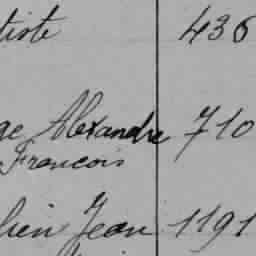 tiste 436
ge Alexandre 710
Francois
lien Jean 1191